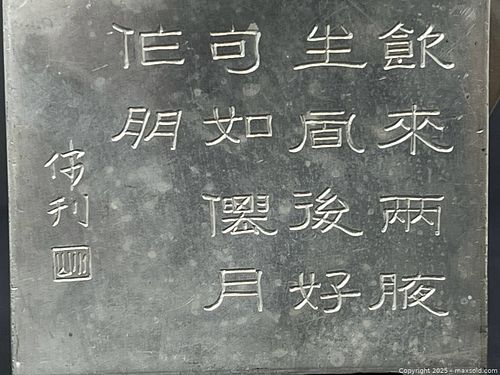 飲來兩腋
生凬後好
句如僊月
作朋
刊
Copyright 2025 - maxsold.com